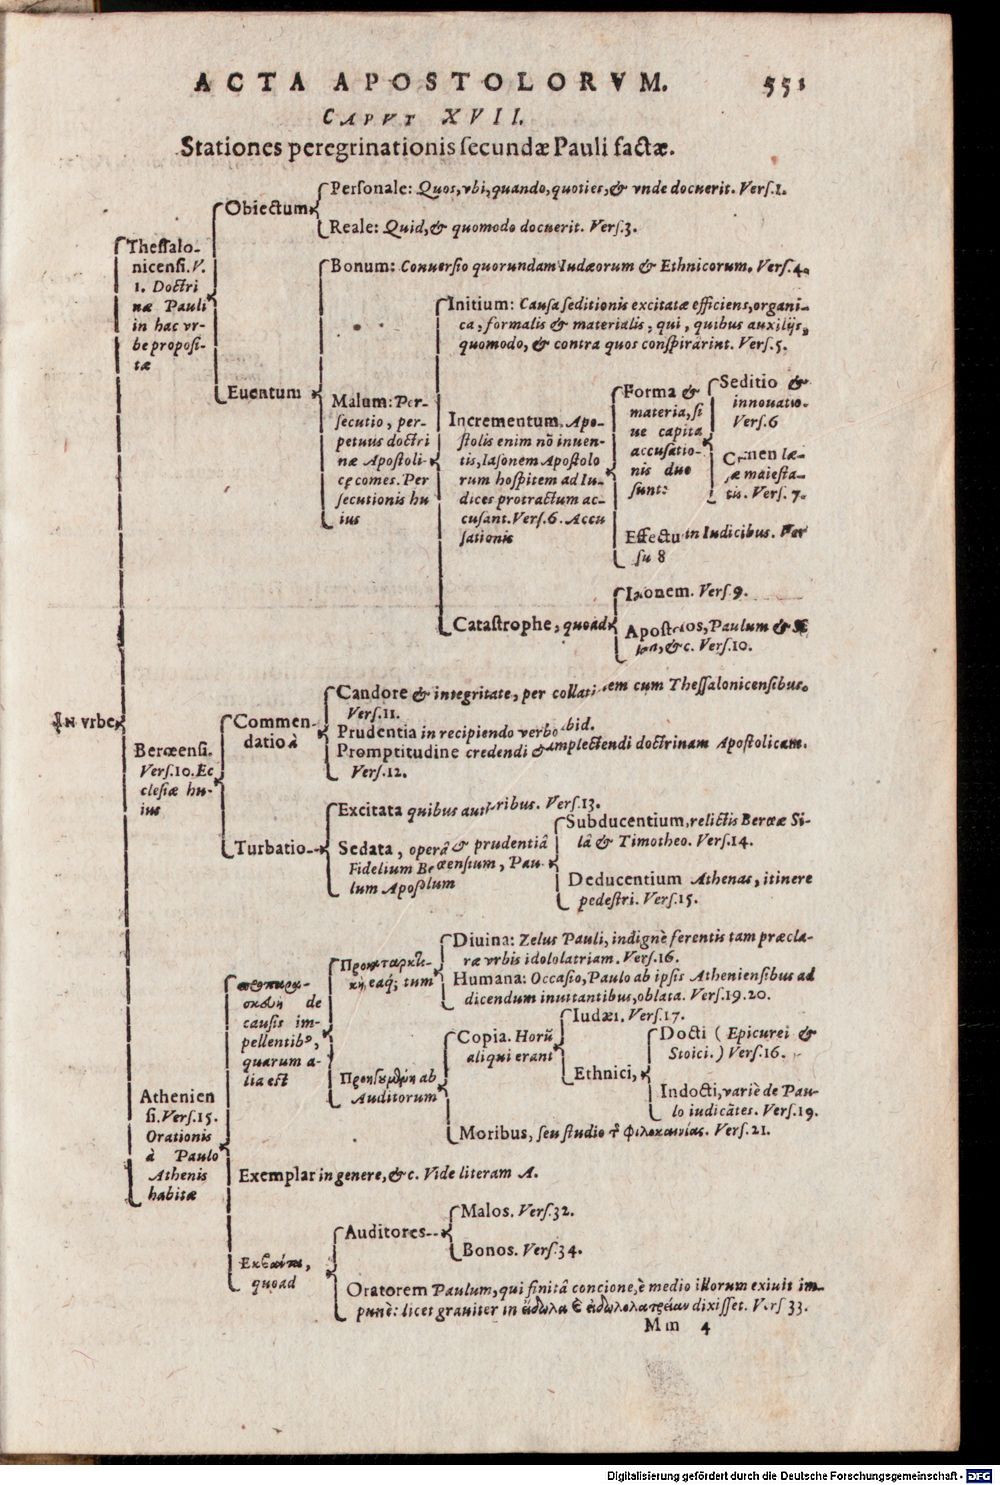 ACTA APOSTOLORVM. 551
CAPVT XVII.
Stationes peregrinationis secundæ Pauli factæ.
Personale: Quos, vbi, quando, quoties, & vnde docuerit. Vers.1.
Obiectum
Reale: Quid, & quomodo docuerit. Vers.3.
Thessalo-
nicensi. V.
1. Doctri
næ Pauli
in hac vr-
be proposi-
tæ
Bonum: Conuersio quorundam Iudæorum & Ethnicorum. Vers.4.
Euentum
Initium: Causa seditionis excitatæ efficiens, organi-
ca, formalis & materialis, qui, quibus auxilijs,
quomodo, & contra quos conspirârint. Vers.5.
Malum: Per-
secutio, per-
petuus doctri
næ Apostoli-
cę comes. Per
secutionis hu
ius
Incrementum. Apo-
stolis enim nõ inuen-
tis, Iasonem Apostolo
rum hospitem ad Iu-
dices protractum ac-
cusant. Vers.6. Accu
sationis
Forma &
materia, si
ue capita
accusatio-
nis duo
sunt:
Seditio &
innouatio.
Vers.6
Crimen læ-
sæ maiesta-
tis. Vers.7.
Effectu in Iudicibus. Ver
su 8
Catastrophe, quoad
Iasonem. Vers.9.
Apostolos, Paulum &
&c. Vers.10.
In vrbe
Berœensi.
Vers.10. Ec
clesiæ hu-
ius
Commen-
datio à
Candore & integritate, per collationem cum Thessalonicensibus.
Vers.11.
Prudentia in recipiendo verbo ibid.
Promptitudine credendi & amplectendi doctrinam Apostolicam.
Vers.12.
Turbatio--
Excitata quibus auctoribus. Vers.13.
Sedata, operâ & prudentiâ
Fidelium Berœensium, Pau-
lum Apostolum
Subducentium, relictis Berœæ Si-
lâ & Timotheo. Vers.14.
Deducentium Athenas, itinere
pedestri. Vers.15.
Athenien
si. Vers.15.
Orationis
à Paulo
Athenis
habitæ
de
causis im-
pellentibꝰ,
quarum a-
lia est
Προκαταρκτι-
κὴ, eaq; tum
Diuina: Zelus Pauli, indignè ferentis tam præcla-
ræ vrbis idololatriam. Vers.16.
Humana: Occasio, Paulo ab ipsis Atheniensibus ad
dicendum inuitantibus, oblata. Vers.19.20.
Προηγουμένη ab
Auditorum
Copia. Horũ
aliqui erant
Iudæi. Vers.17.
Ethnici,
Docti (Epicurei &
Stoici.) Vers.16.
Indocti, variè de Pau-
lo iudicãtes. Vers.19.
Moribus, seu studio τ φιλοκαινίας. Vers.21.
Exemplar in genere, &c. Vide literam A.
Εκβάσει,
quoad
Auditores--
Malos. Vers.32.
Bonos. Vers.34.
Oratorem Paulum, qui finitâ concione, è medio illorum exiuit im-
punè: licet grauiter in εἴδωλα & εἰδωλολατρείαν dixisset. Vers 33.
Mm 4
Digitalisierung gefördert durch die Deutsche Forschungsgemeinschaft - DFG